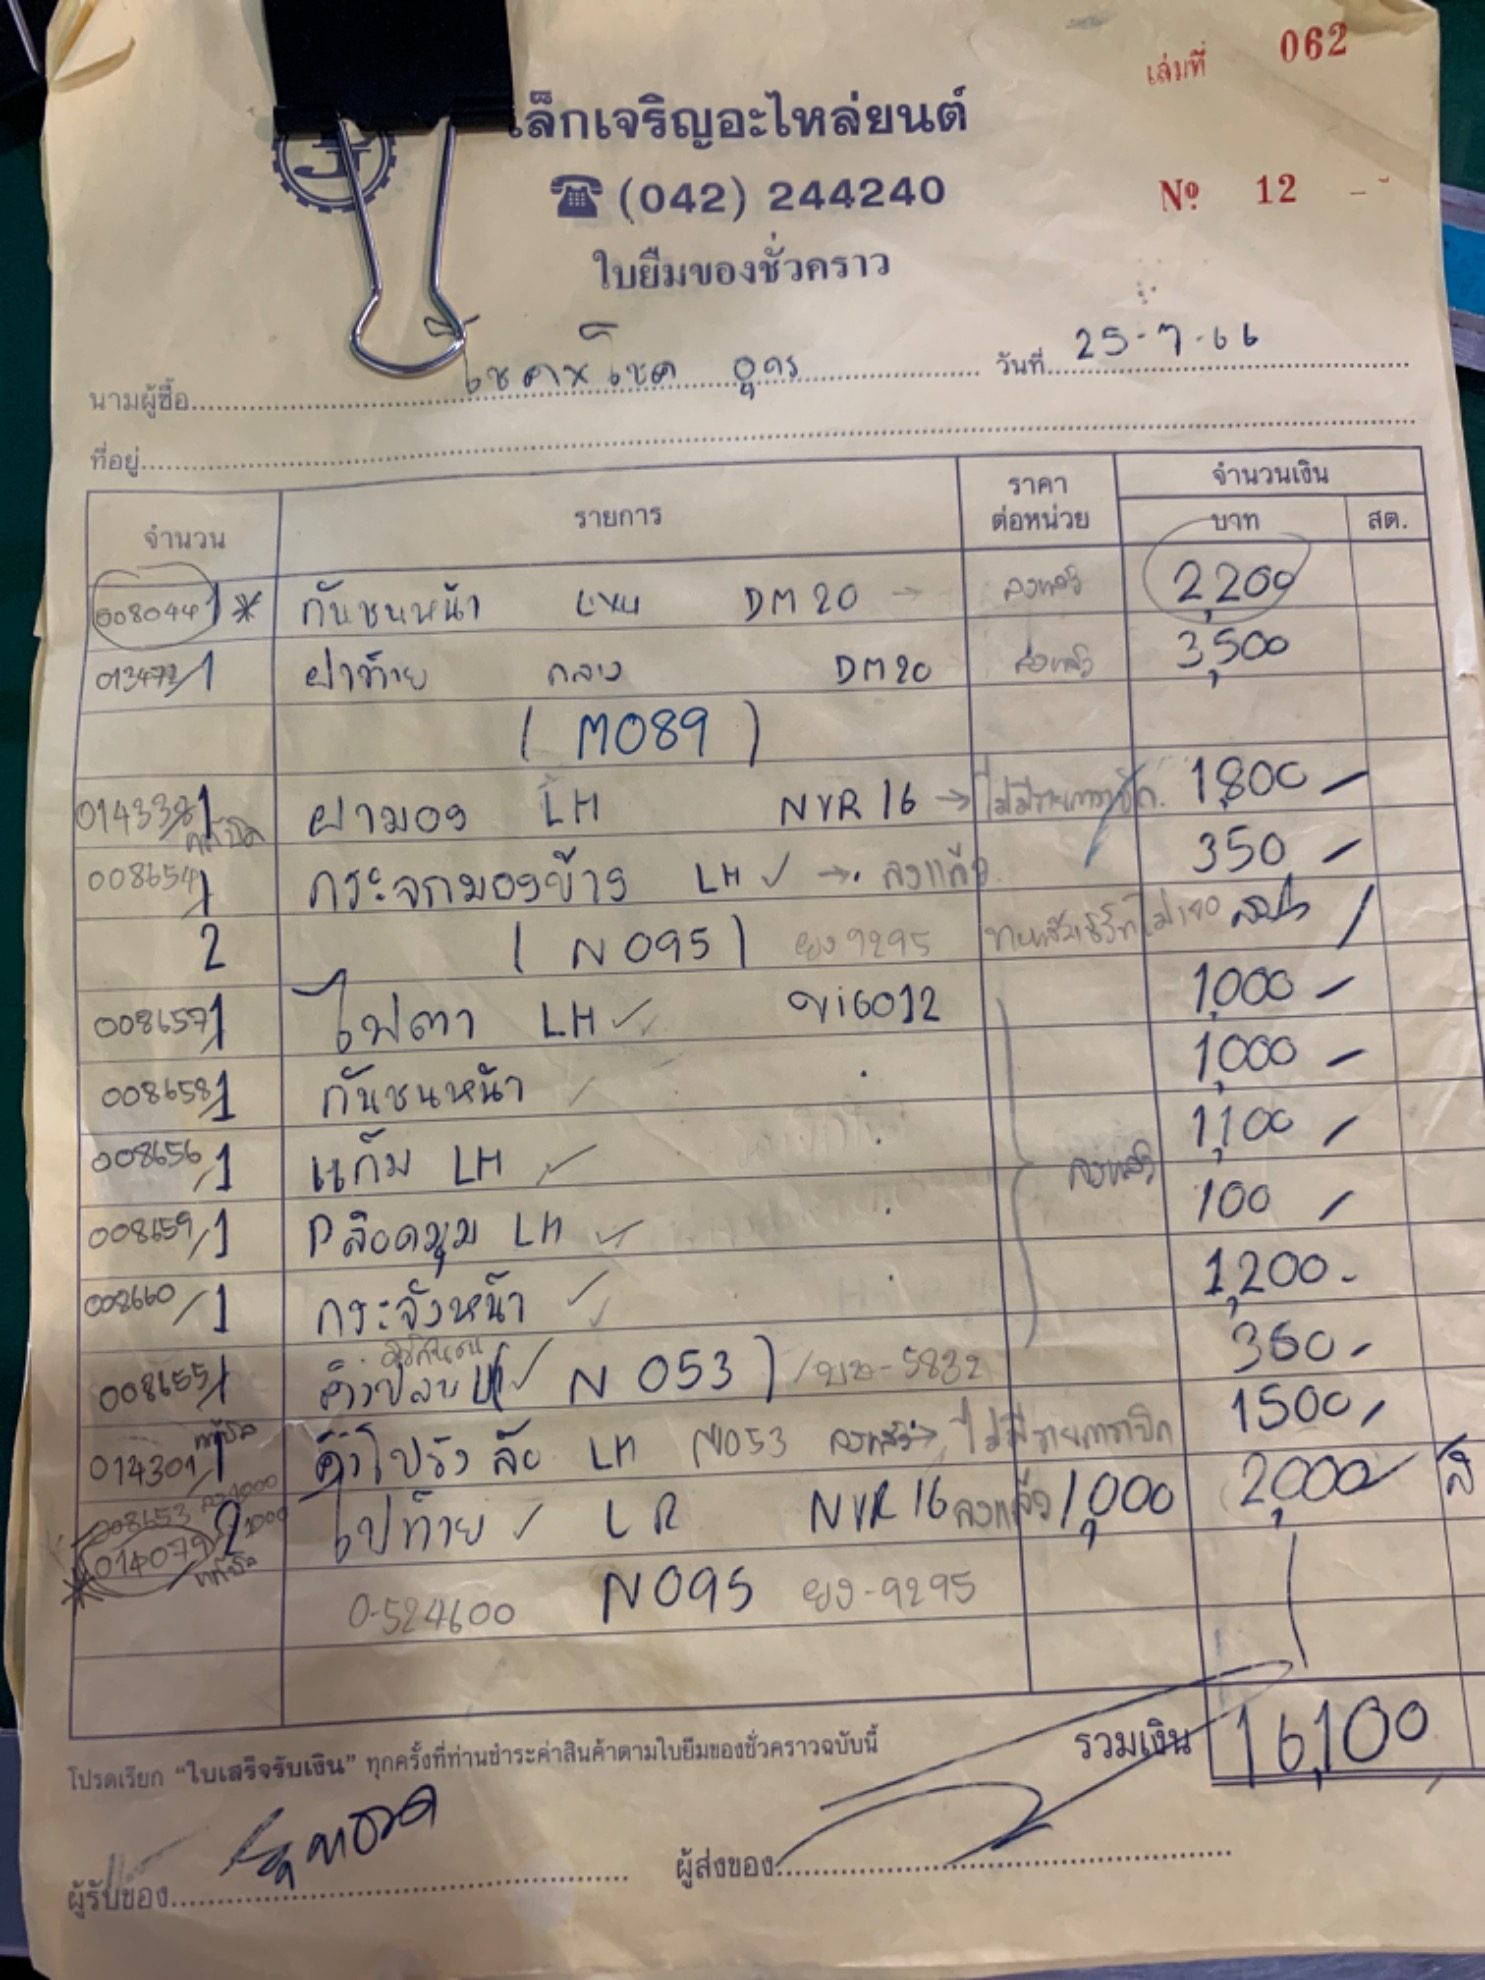 เล่มที่ 062
เล็กเจริญอะไหล่ยนต์
(042) 244240
Nº 12
ใบยืมของชั่วคราว
นามผู้ซื้อ โชคาโชค อุดร วันที่ 25-7-66
ที่อยู่
จำนวน รายการ ราคาต่อหน่วย จำนวนเงิน
บาท สต.
008044 1 * กันชนหน้า DM20 ลงแล้ว 2,200
013472/1 ฝาท้าย กลาง DM20 ลงแล้ว 3,500
(M089)
014338/1 ฝามอง LH NVR16 → ไม่มีรายการเบิก 1,800 -
008654/1 กระจกมองข้าง LH ✓ → ลงแล้ว 350 -
2 (N095) ยง 9295
008657/1 ไฟตา LH ✓ 1,000 -
008658/1 กันชนหน้า ✓ 1,000 -
008656/1 แก้ม LH ✓ ลงแล้ว 1,100 -
008659/1 LH ✓ 100 -
008660/1 กระจังหน้า ✓ 1,200 -
008655/1 N 053) 5832 350 -
014301/1 คิ้วโป่งล้อ LH N053 ลงแล้ว → ไม่มีรายการเบิก 1500 -
008653 ลง 1000
014079 2 ไฟท้าย ✓ LR NVR16 ลงแล้ว 1,000 2,000
0-524600 N095 ยง-9295
รวมเงิน 16,100
โปรดเรียก “ใบเสร็จรับเงิน” ทุกครั้งที่ท่านชำระค่าสินค้าตามใบยืมของชั่วคราวฉบับนี้
ผู้รับของ ผู้ส่งของ